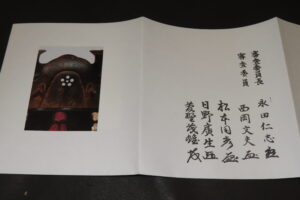 審査委員長
審査委員
永田仁志
西岡文夫
松本国彦
日野廣生